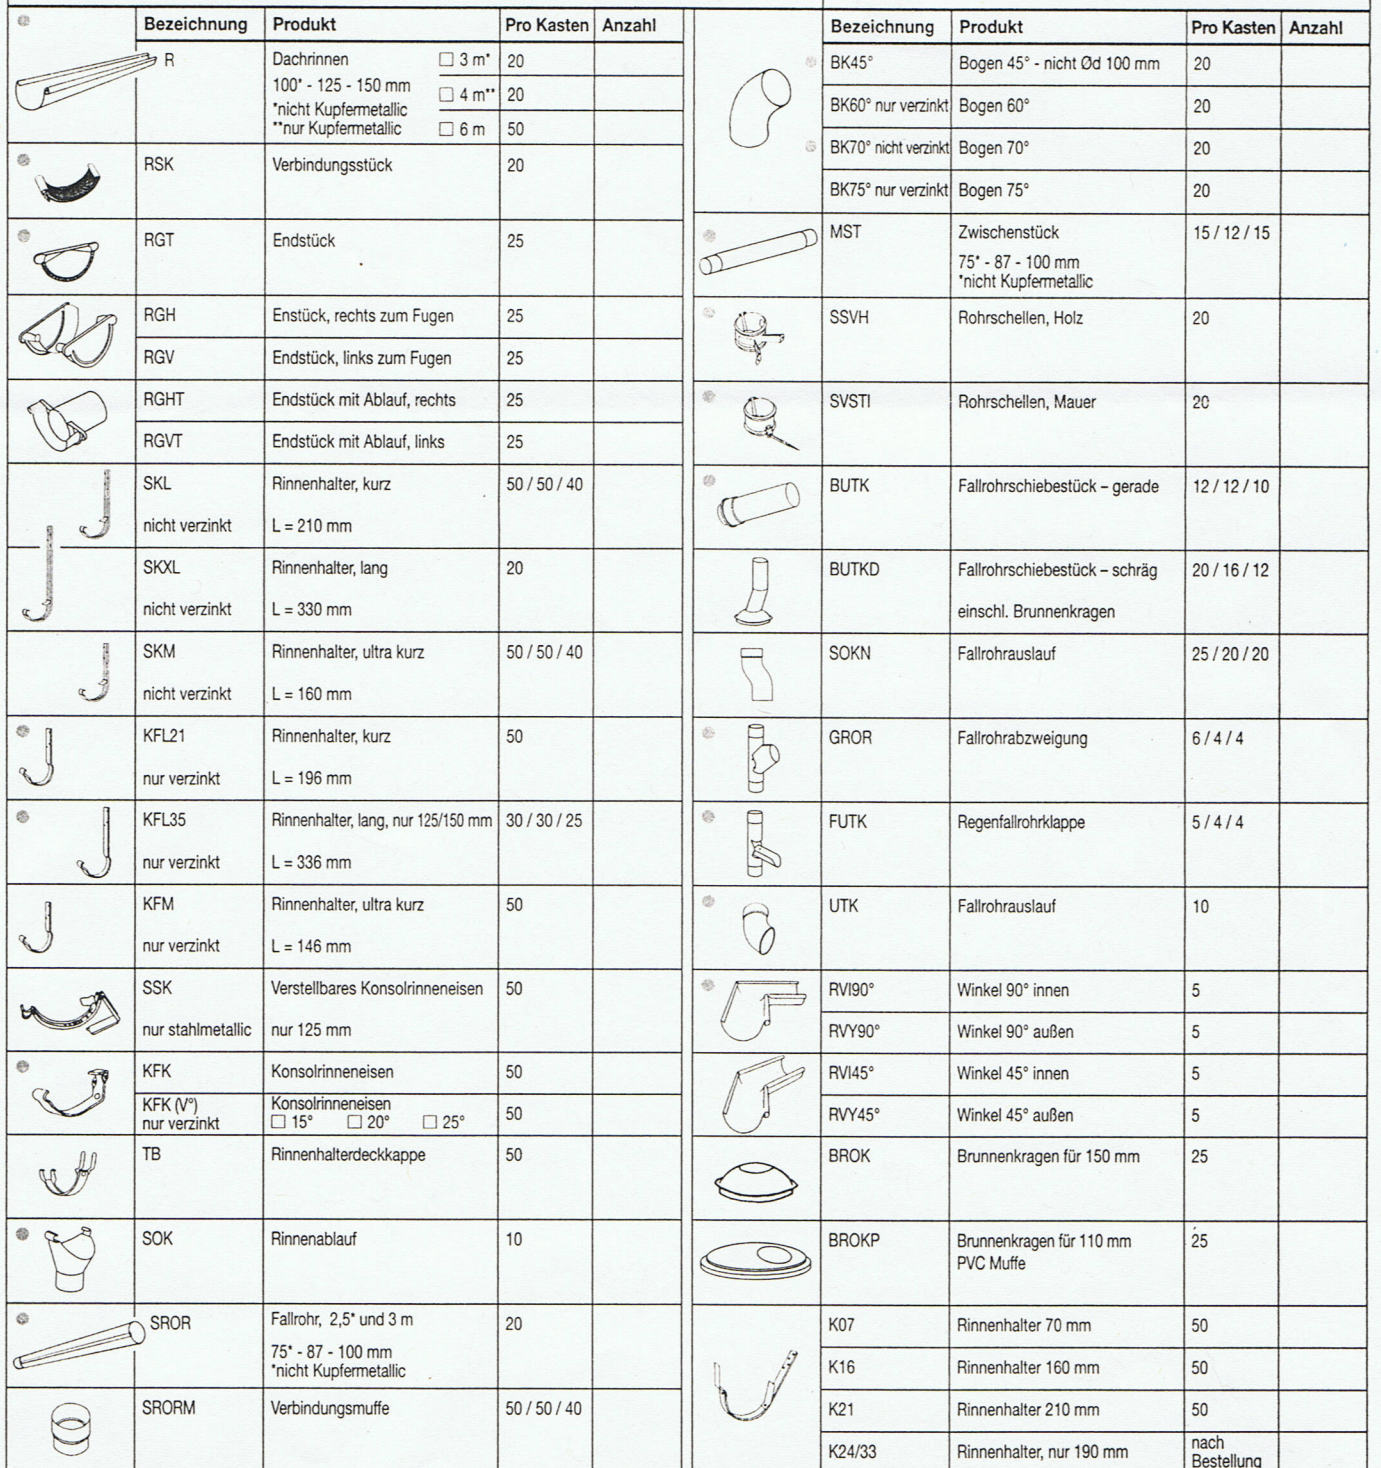 Bezeichnung Produkt Pro Kasten Anzahl
R Dachrinnen ☐ 3 m* 20
100* - 125 - 150 mm
☐ 4 m** 20
*nicht Kupfermetallic
**nur Kupfermetallic ☐ 6 m 50
RSK Verbindungsstück 20
RGT Endstück 25
RGH Enstück, rechts zum Fugen 25
RGV Endstück, links zum Fugen 25
RGHT Endstück mit Ablauf, rechts 25
RGVT Endstück mit Ablauf, links 25
SKL Rinnenhalter, kurz 50 / 50 / 40
nicht verzinkt L = 210 mm
SKXL Rinnenhalter, lang 20
nicht verzinkt L = 330 mm
SKM Rinnenhalter, ultra kurz 50 / 50 / 40
nicht verzinkt L = 160 mm
KFL21 Rinnenhalter, kurz 50
nur verzinkt L = 196 mm
KFL35 Rinnenhalter, lang, nur 125/150 mm 30 / 30 / 25
nur verzinkt L = 336 mm
KFM Rinnenhalter, ultra kurz 50
nur verzinkt L = 146 mm
SSK Verstellbares Konsolrinneneisen 50
nur stahlmetallic nur 125 mm
KFK Konsolrinneneisen 50
KFK (V°) Konsolrinneneisen 50
nur verzinkt ☐ 15° ☐ 20° ☐ 25°
TB Rinnenhalterdeckkappe 50
SOK Rinnenablauf 10
SROR Fallrohr, 2,5* und 3 m 20
75* - 87 - 100 mm
*nicht Kupfermetallic
SRORM Verbindungsmuffe 50 / 50 / 40
Bezeichnung Produkt Pro Kasten Anzahl
BK45° Bogen 45° - nicht Ød 100 mm 20
BK60° nur verzinkt Bogen 60° 20
BK70° nicht verzinkt Bogen 70° 20
BK75° nur verzinkt Bogen 75° 20
MST Zwischenstück 15 / 12 / 15
75* - 87 - 100 mm
*nicht Kupfermetallic
SSVH Rohrschellen, Holz 20
SVSTI Rohrschellen, Mauer 20
BUTK Fallrohrschiebestück – gerade 12 / 12 / 10
BUTKD Fallrohrschiebestück – schräg 20 / 16 / 12
einschl. Brunnenkragen
SOKN Fallrohrauslauf 25 / 20 / 20
GROR Fallrohrabzweigung 6 / 4 / 4
FUTK Regenfallrohrklappe 5 / 4 / 4
UTK Fallrohrauslauf 10
RVI90° Winkel 90° innen 5
RVY90° Winkel 90° außen 5
RVI45° Winkel 45° innen 5
RVY45° Winkel 45° außen 5
BROK Brunnenkragen für 150 mm 25
BROKP Brunnenkragen für 110 mm 25
PVC Muffe
K07 Rinnenhalter 70 mm 50
K16 Rinnenhalter 160 mm 50
K21 Rinnenhalter 210 mm 50
K24/33 Rinnenhalter, nur 190 mm nach
Bestellung